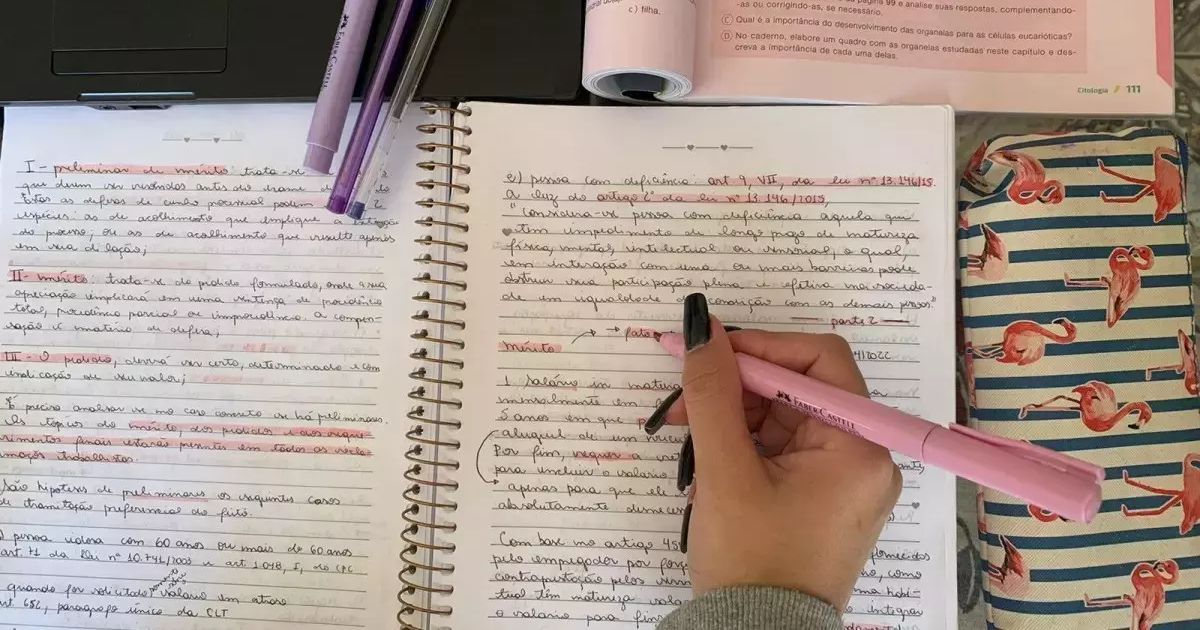 FABER-CASTELL
c) filha.
página 99 e analise suas respostas, complementando-
-as ou corrigindo-as, se necessário.
C Qual é a importância do desenvolvimento das organelas para as células eucarióticas?
D No caderno, elabore um quadro com as organelas estudadas neste capítulo e des-
creva a importância de cada uma delas.
Citologia 111
I - preliminar de mérito: trata-se
antes do exame
as defesas de cunho processual podem
espécies: as de acolhimento que implique a extinção
do processo; ou as de acolhimento que resulte apenas
em sua dilação;
II - mérito: trata-se do pedido formulado, onde a sua
apreciação implicará em uma sentença de procedência
total, procedência parcial ou improcedência. A compen-
sação é matéria de defesa;
III - O pedido, deverá ser certo, determinado e com
indicação de seu valor;
É preciso analisar se no caso concreto se há preliminares.
Os tópicos do mérito, dos pedidos e dos reque-
rimentos finais estarão presentes em todas as recla-
mações trabalhistas.
São hipóteses de preliminares os seguintes casos
de tramitação preferencial do feito.
pessoa idosa com 60 anos ou mais de 60 anos
art. 71 da Lei nº 10.741/2003 e art 1.048, I, do CPC
quando for solicitado salário em atraso
art. 652, parágrafo único da CLT
e) pessoa com deficiência: art 9, VII, da lei nº 13.146/15.
A luz do artigo 2º da lei nº 13.146/2015,
"Considera-se pessoa com deficiência aquela que
tem impedimento de longo prazo de natureza
física, mental, intelectual ou sensorial, o qual,
em interação com uma ou mais barreiras pode
obstruir sua participação plena e efetiva na socieda-
de em igualdade de condição com as demais pessoas."
parte 2
→ fato
Mérito
/2022
1. Salário in natura
mensalmente em
5 anos em que
aluguel de um
Por fim, requer a
para incluir o salário
apenas para que ele
absolutamente
Com base no artigo 45
fornecidos
pelo empregador por força
como
contraprestação pelos
tual têm natureza
integrar
o salário para fins
FABER-CASTELL